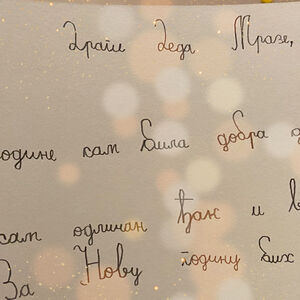 Драги Деда Мразе,
године сам била добра
сам одличан ђак и
За Нову годину бих